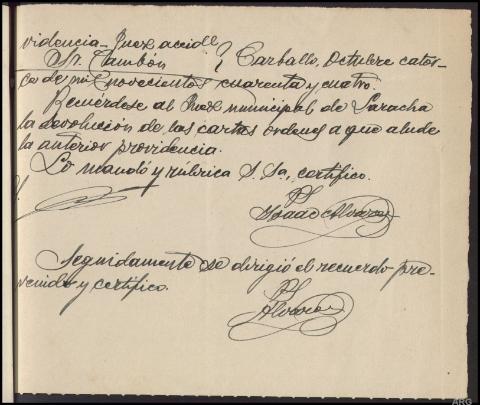 videncia - Juez accidl
Sr. Cambón } Carballo, Octubre cator-
ce de mil novecientos cuarenta y cuatro.
Recuérdese al Juez municipal de Laracha
la devolución de las cartas órdenes a que alude
la anterior providencia.
Lo mandó y rúbrica S. Sa, certifico.
Isaac Alvarez
Seguidamente se dirigió el recuerdo pre-
venido y certifico.
Alvarez
ARG